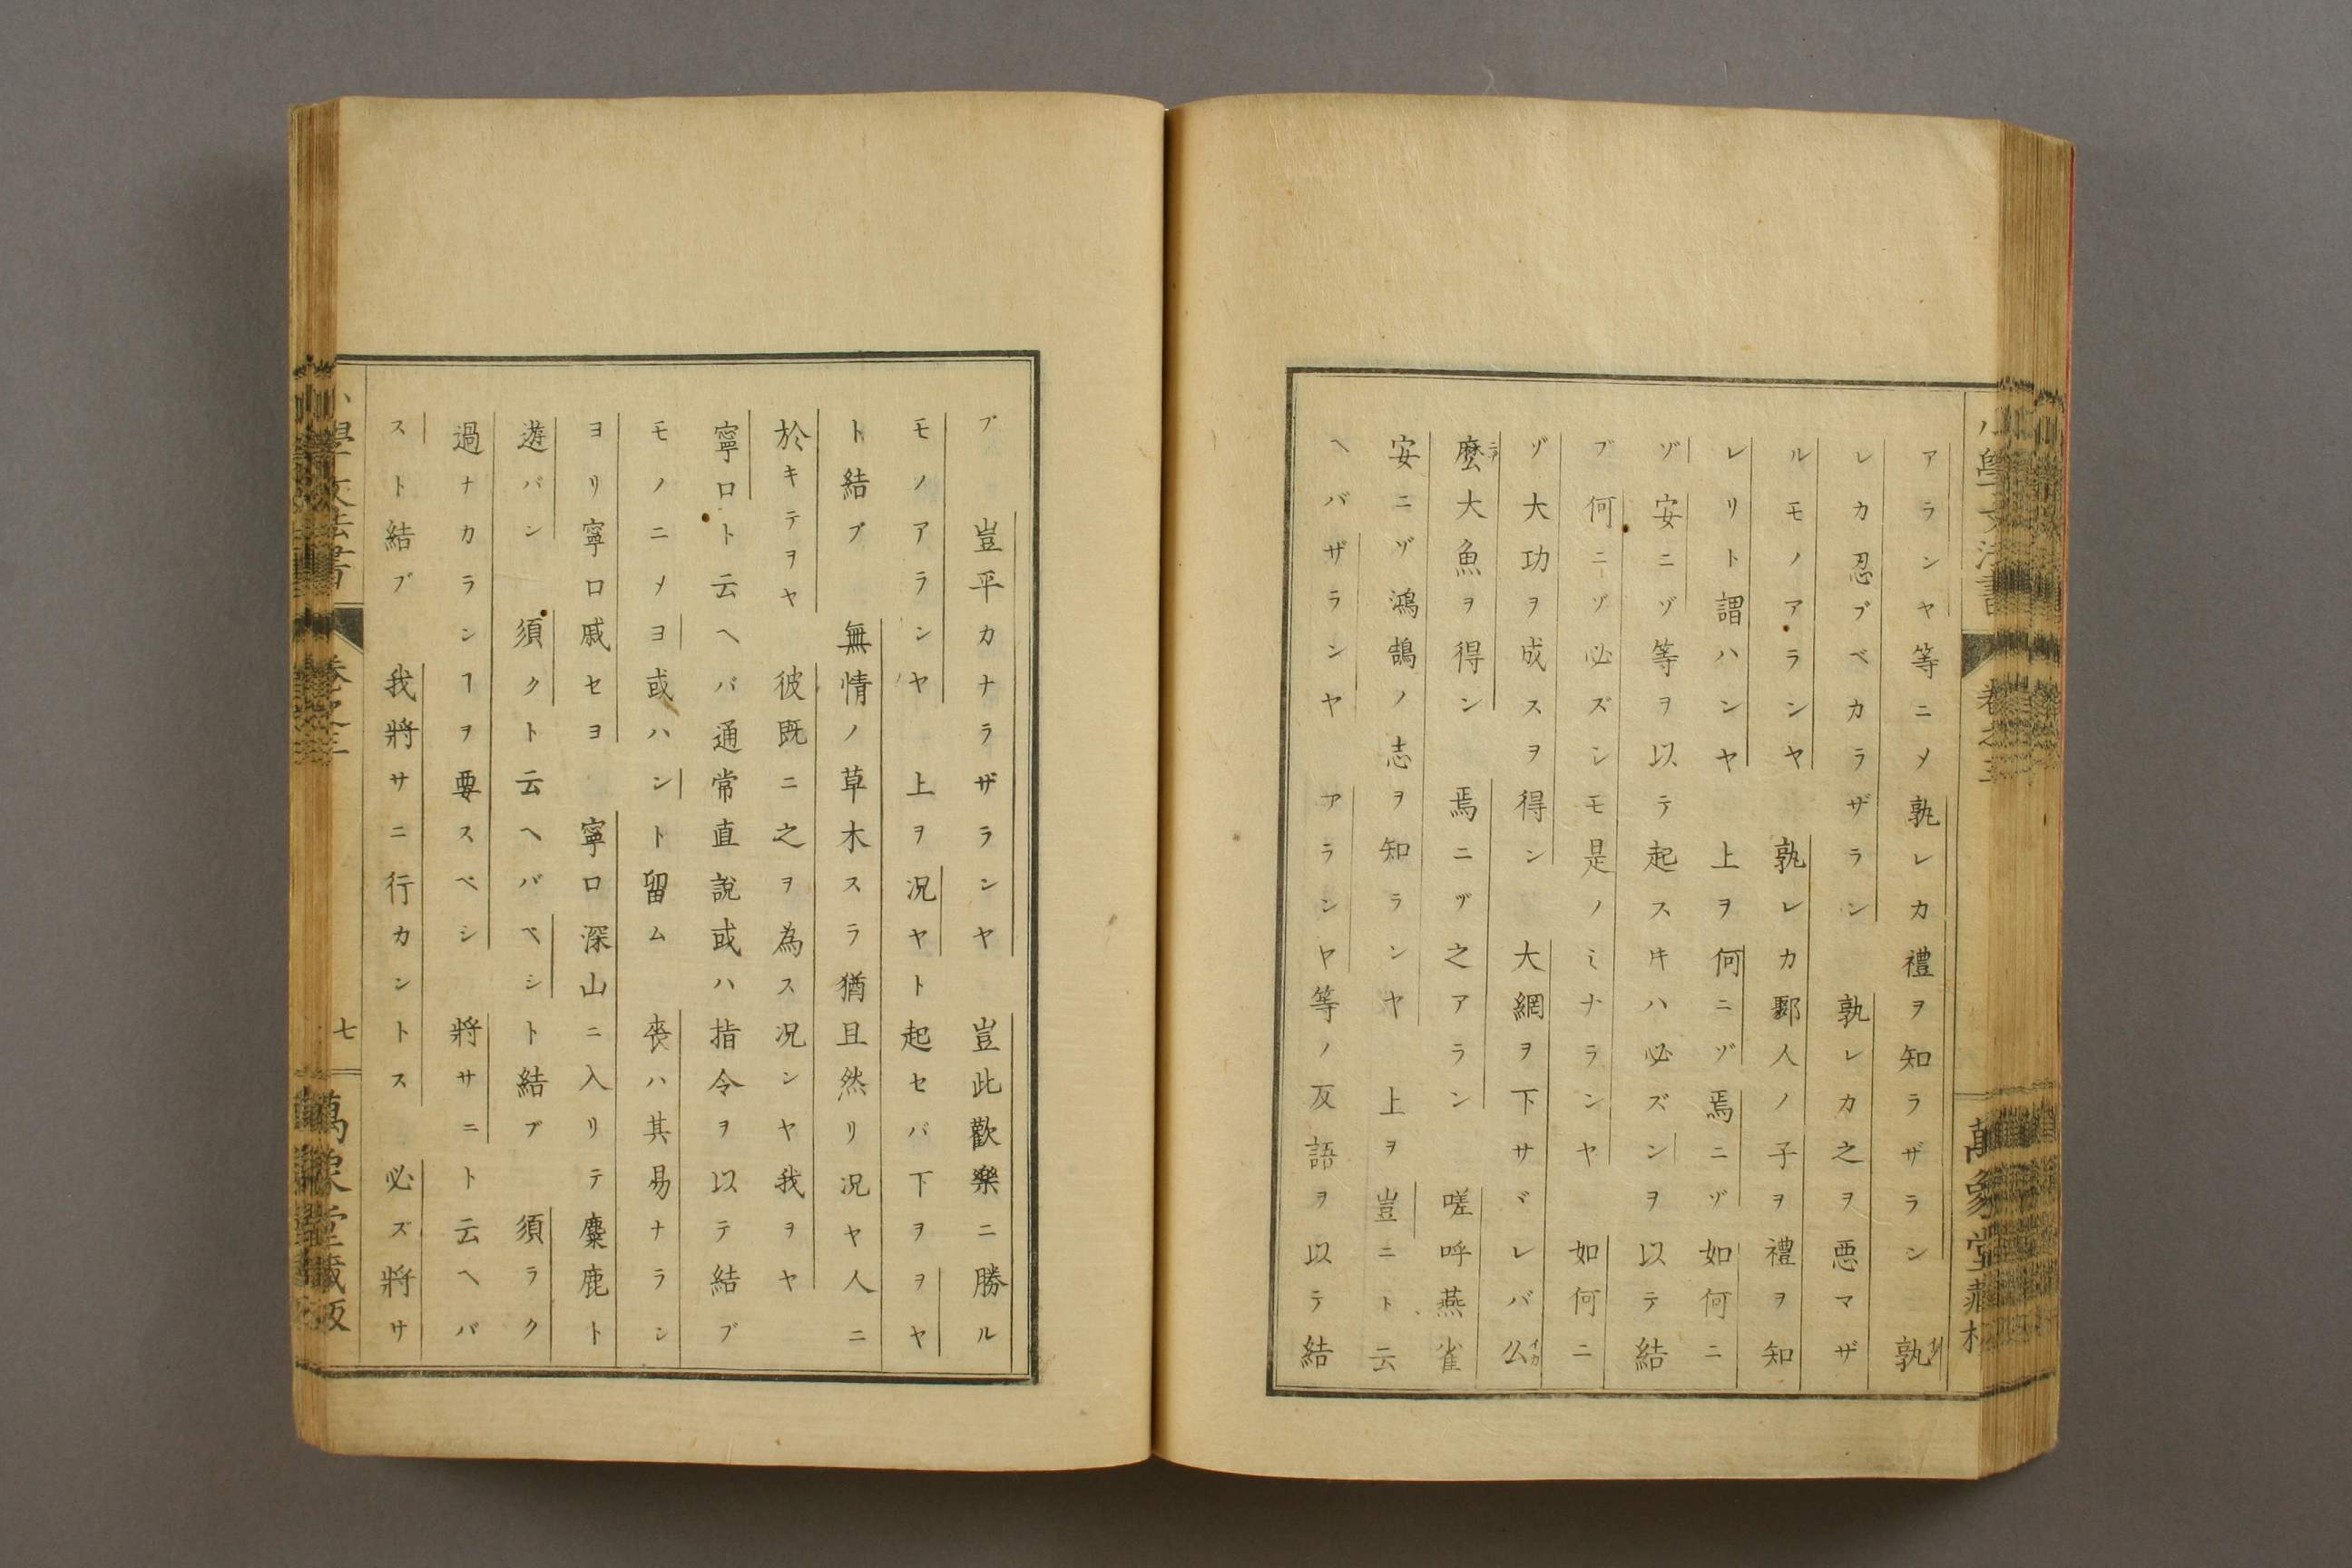 小學文法書 卷之三 萬象堂藏板
アランヤ等ニメ孰レカ禮ヲ知ラザラン 孰
レカ忍ブベカラザラン 孰レカ之ヲ悪マザ
ルモノアランヤ 孰レカ鄹人ノ子ヲ禮ヲ知
レリト謂ハンヤ 上ヲ何ニゾ焉ニゾ如何ニ
ゾ安ニゾ等ヲ以テ起スキハ必ズンヲ以テ結
ブ何ニゾ必ズシモ是ノミナランヤ 如何ニ
ゾ大功ヲ成スヲ得ン 大網ヲ下サヾレバ公
麼大魚ヲ得ン 焉ニゾ之アラン 嗟呼燕雀
安ニゾ鴻鵠ノ志ヲ知ランヤ 上ヲ豈ニト云
ヘバザランヤ アランヤ等ノ反語ヲ以テ結
ブ 豈平カナラザランヤ 豈此歡樂ニ勝ル
モノアランヤ 上ヲ況ヤト起セバ下ヲヲヤ
ト結ブ 無情ノ草木スラ猶且然リ況ヤ人ニ
於キテヲヤ 彼既ニ之ヲ為ス况ンヤ我ヲヤ
寧ロト云ヘバ通常直說或ハ指令ヲ以テ結ブ
モノニメヨ或ハント留ム 喪ハ其易ナラン
ヨリ寧ロ戚セヨ 寧ロ深山ニ入リテ麋鹿ト
遊バン 須クト云ヘバベシト結ブ 須ラク
過ナカランヿヲ要スベシ 將サニト云ヘバ
スト結ブ 我將サニ行カントス 必ズ將サ
小學文法書 卷之三 七 萬象堂藏板